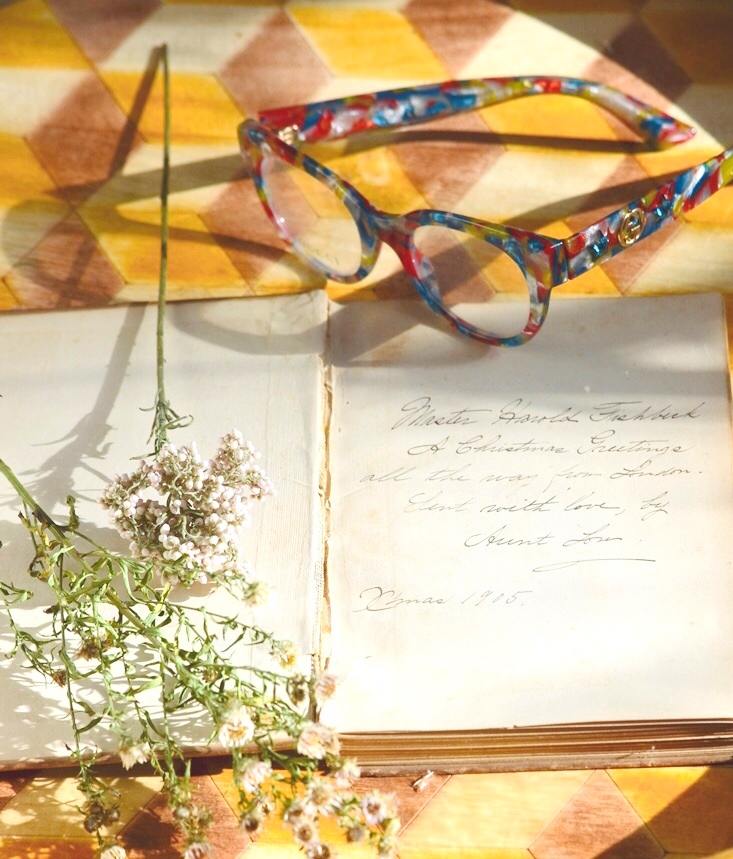 Master Harold Fishbeck
A Christmas Greetings
all the way from London.
Sent with love, by
Aunt Lou.
X'mas 1905.